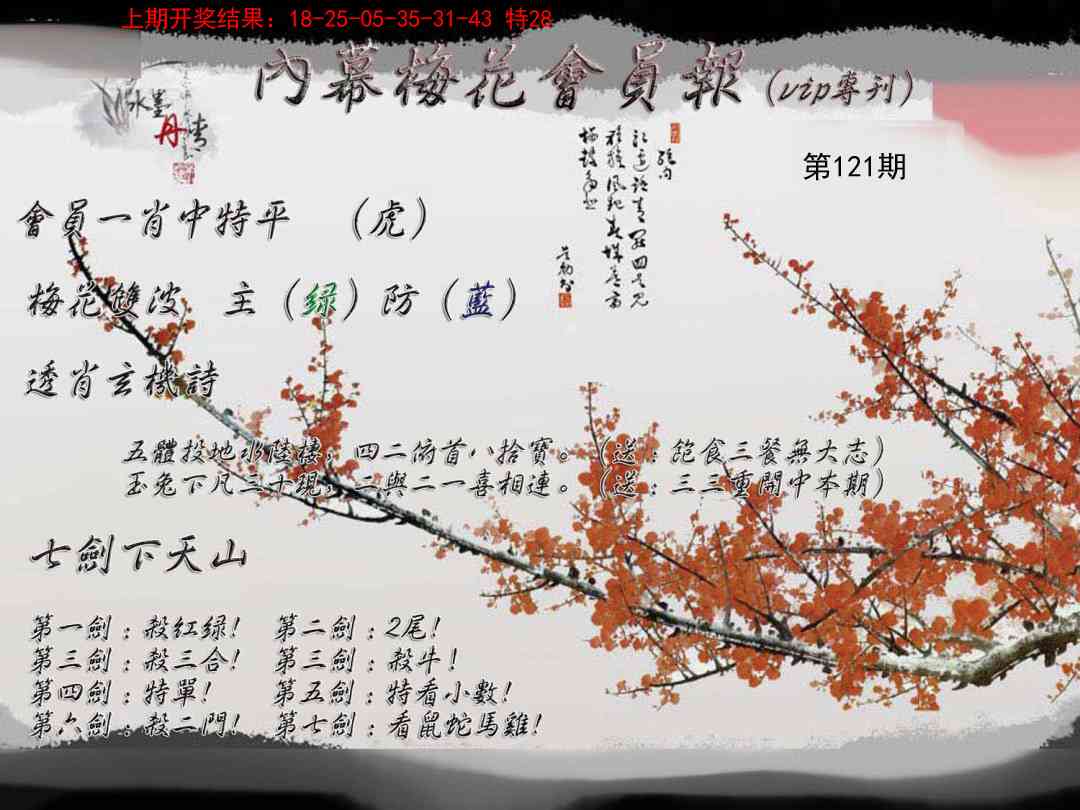 上期开奖结果：18-25-05-35-31-43 特28
內幕梅花會員報（vip專刊）
水墨
丹情
第121期
會員一肖中特平 （虎）
梅花雙波 主（绿）防（藍）
透肖玄機詩
五體投地水陸樓，四二俯首八拾寶。（送：飽食三餐無大志）
玉兔下凡三十現，二與二一喜相連。（送：三三重開中本期）
七劍下天山
第一劍：殺紅绿! 第二劍：2尾!
第三劍：殺三合! 第三劍：殺牛!
第四劍：特單! 第五劍：特看小數!
第六劍：殺二門! 第七劍：看鼠蛇馬雞!